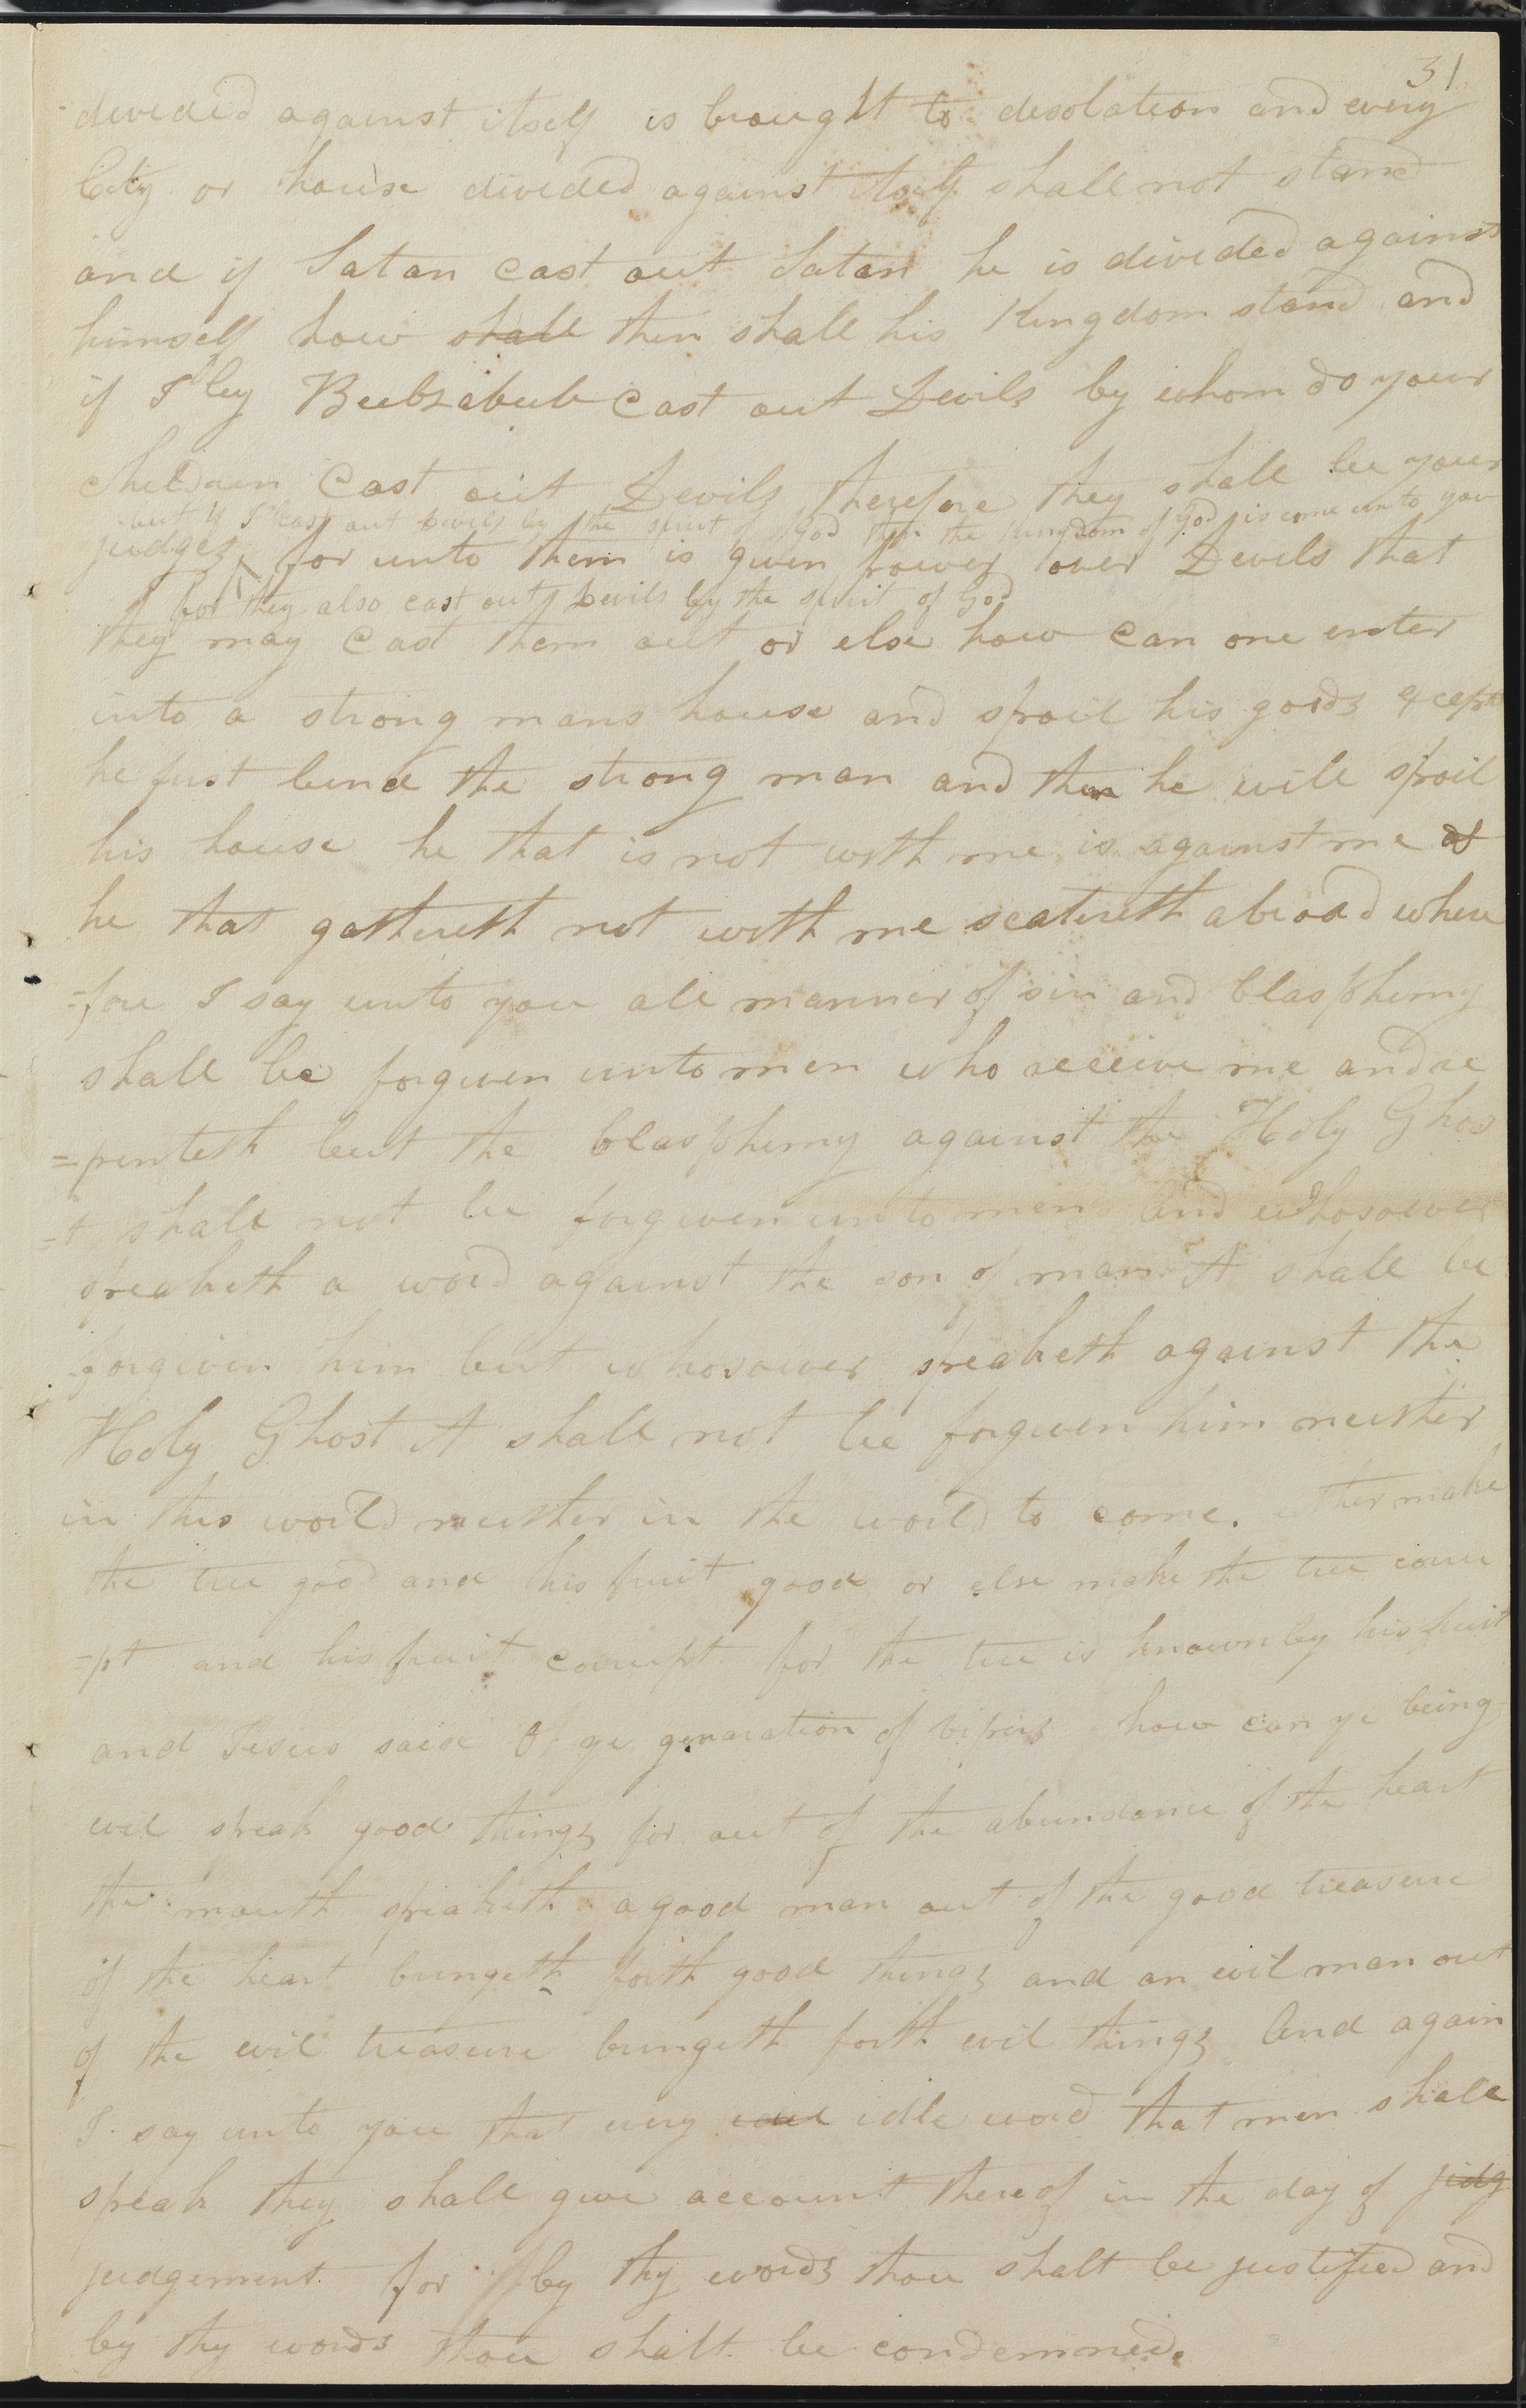 31
devided against itself is brought to desolation and every
City or house divided against itself shall not stand
and if Satan cast out Satan he is divided against
himself how shall then shall his Kingdom stand and
if I by Beelzebub cast out Devils by whom do your
children cast out Devils therefore they shall be your
but if I cast out Devils by the spirit of God then the kingdom of God is come unto you
judges for unto them is given power over Devils that
for they also cast out Devils by the spirit of God
they may cast them out or else how can one enter
into a strong mans house and spoil his goods except
he first bind the strong man and then he will spoil
his house he that is not with me is against me
he that gathereth not with me scatereth abroad where
=fore I say unto you all manner of sin and blasphemy
shall be forgiven unto men who receive me and re
=penteth but the blasphemy against the Holy Ghos
=t shall not be forgiven unto men And whosoever
speaketh a word against the son of man it shall be
forgiven him but whosoever speaketh against the
Holy Ghost it shall not be forgiven him neither
in this world neither in the world to come. either make
the tree good and his fruit good or else make the tree corru
=pt and his fruit corrupt for the tree is known by his fruit
and Jesus said O ye genaration of vipers how can ye being
evil speak good things for out of the abundance of the heart
the mouth speaketh a good man out of the good treasure
of the heart bringeth forth good things and an evil man out
of the evil treasure bringeth forth evil things And again
I say unto you that every evil idle word that men shall
speak they shall give account thereof in the day of judg
judgement for by thy words thou shalt be justified and
by thy words thou shalt be condemned.